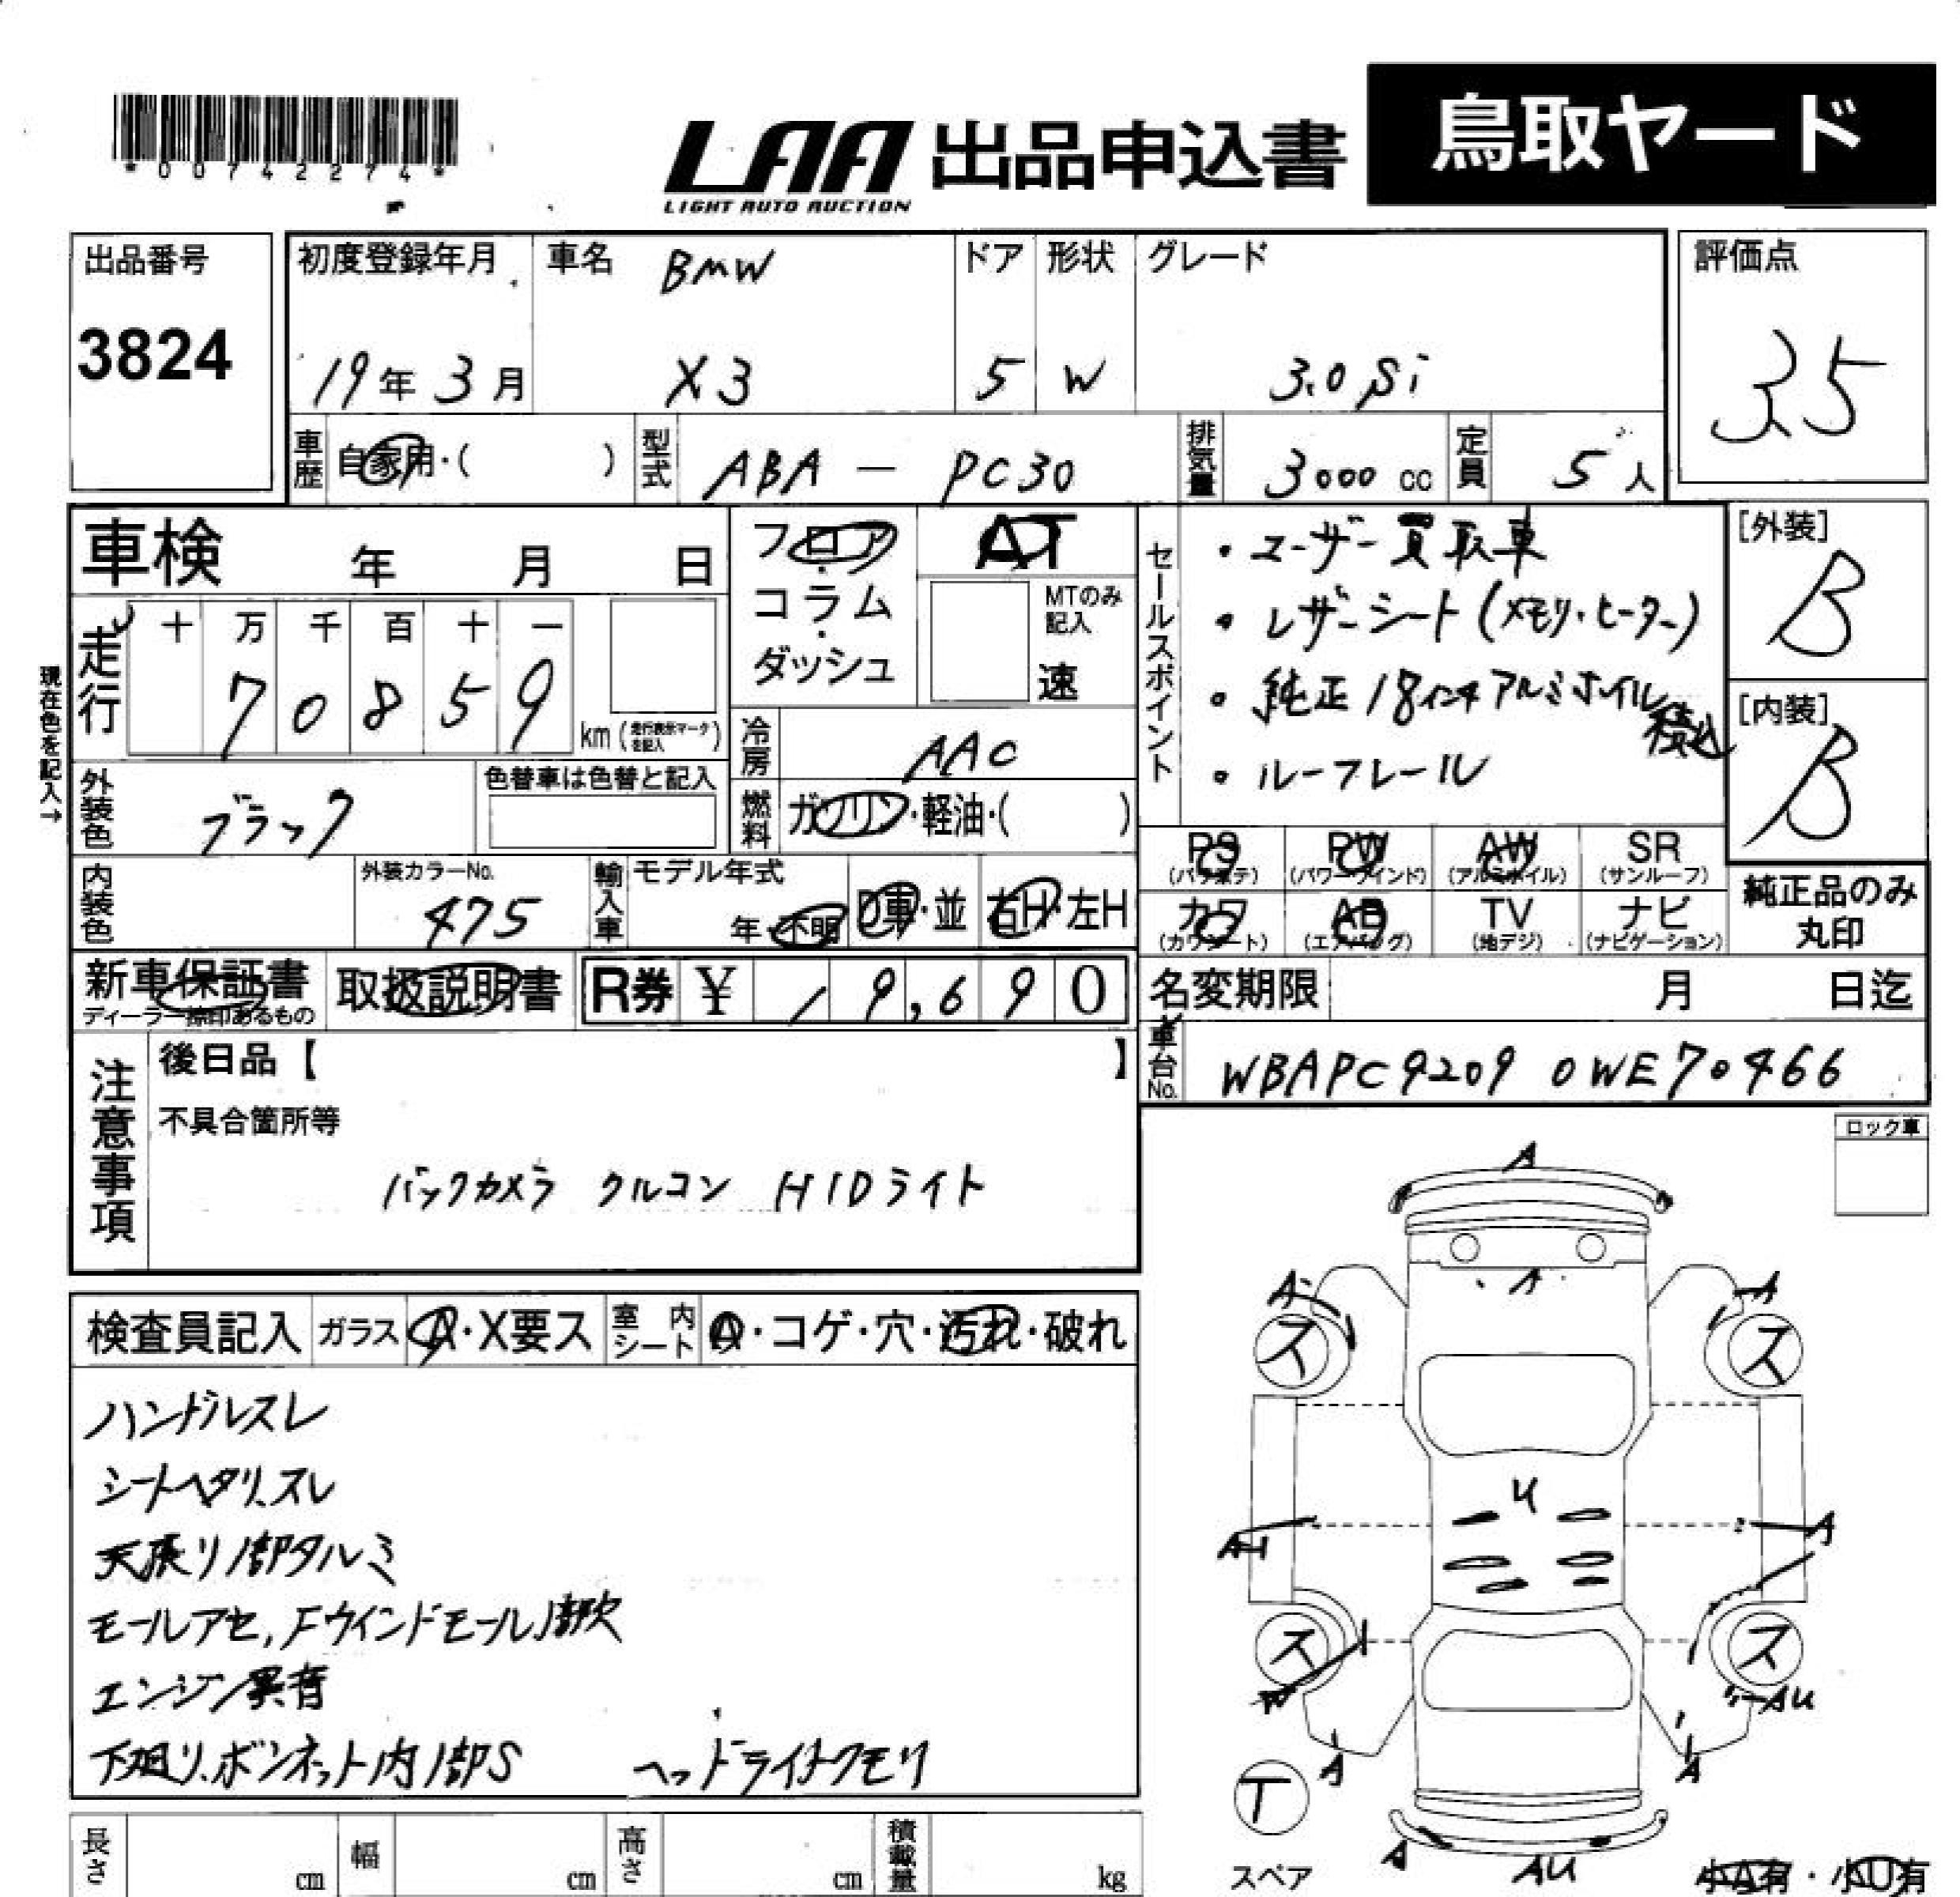 *00742274*
LAA 出品申込書 鳥取ヤード
LIGHT AUTO AUCTION
出品番号 初度登録年月 車名 BMW ドア 形状 グレード 評価点
3824 19年 3月 X3 5 W 3.0 Si 3.5
車歴 自家用・( ) 型式 ABA - PC30 排気量 3000 cc 定員 5人
車検 年 月 日
フロア・コラム・ダッシュ
AT
MTのみ記入
速
セールスポイント
・ユーザー買取車
・レザーシート(メモリ・ヒーター)
・純正18インチアルミホイル積込
・ルーフレール
[外装]
B
[内装]
B
現在色を記入→
走行 十 万 千 百 十 一
7 0 8 5 9 km (走行表示マークを記入)
冷房 AAC
外装色 ブラック 色替車は色替と記入
燃料 ガソリン・軽油・( )
PS (パワステ) PW (パワーウインド) AW (アルミホイル) SR (サンルーフ)
カワ (カワシート) AB (エアバッグ) TV (地デジ) ナビ (ナビゲーション)
純正品のみ
丸印
内装色 外装カラーNo. 475 輸入車 モデル年式 年・不明 D車・並 右H・左H
新車保証書 取扱説明書 R券 ¥ 19,690
ディーラー捺印あるもの
名変期限 月 日迄
車台No. WBAPC92090WE70466
注意事項
後日品【 】
不具合箇所等
バックカメラ クルコン HIDライト
ロック車
検査員記入 ガラス A・X要ス 室内シート A・コゲ・穴・汚れ・破れ
ハンドルスレ
シートヘタリ、スレ
天張り1部タルミ
モールアセ, Fウインドモール1部欠
エンジン異音
下廻り、ボンネット内1部S ヘッドライトクモリ
A
A A A
ス ス
U
A A
ス ス
W AU
A A
T
スペア
A AU
小A有・小U有
長さ cm 幅 cm 高さ cm 積載量 kg